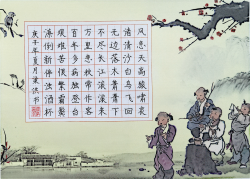 风急天高猿啸哀
渚清沙白鸟飞回
无边落木萧萧下
不尽长江滚滚来
万里悲秋常作客
百年多病独登台
艰难苦恨繁霜鬓
潦倒新停浊酒杯
庚子年夏月洪书